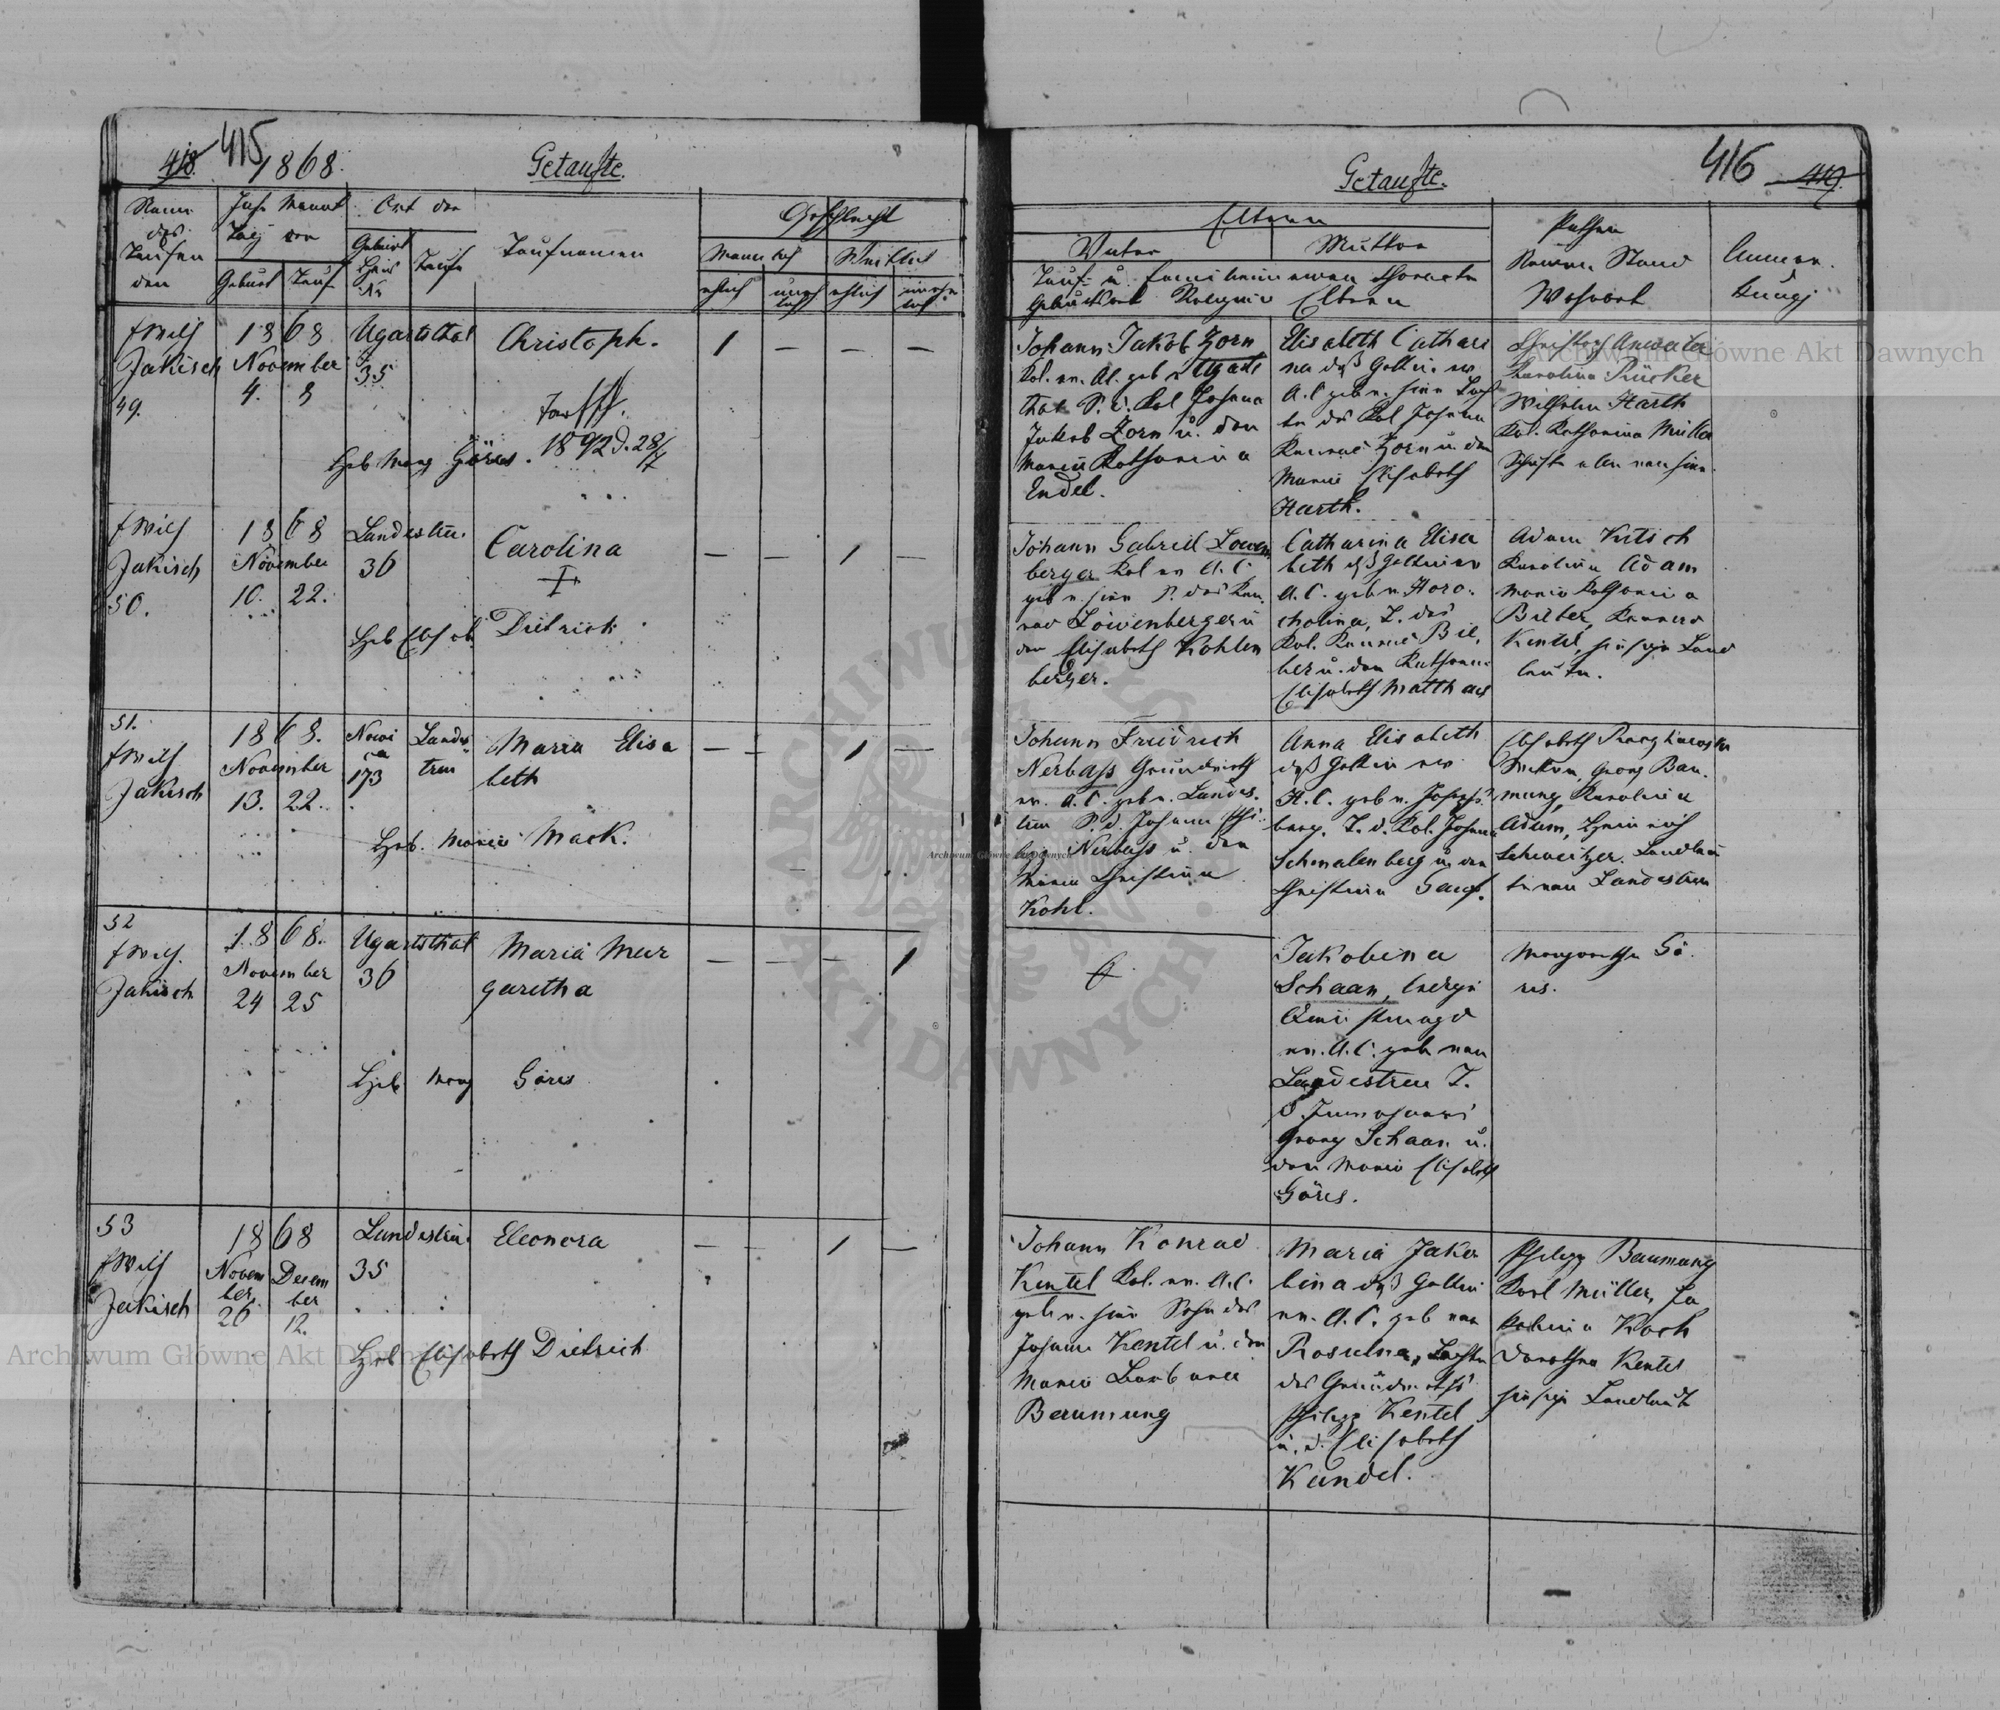 418. 415
1868.
Getaufte.
Name
des
Taufen
den
Jahr Monat
Tag der
Geburt
Tauf
Ort der
Geburt
Haus
Nr
Taufe
Taufnamen
Geschlecht
Mannlich
Weiblich
ehlich
unehlich
ehlich
unehlich
Jakisch
49.
1868
November
4. 8
Ugartsthal
35
Christoph.
1 — — —
1892 d. 28/7
Heb. Marg Göres.
Jakisch
50.
1868
November
10. 22.
Landestreu.
36
Carolina
— — 1 —
Heb Elisab. Dietrich
51.
Jakisch
1868.
November
13. 22.
Nowi
ca
173
Landes
treu
Maria Elisa
beth
— — 1 —
Heb. Maria Mack.
52
Jakisch
1868.
November
24 25
Ugartsthal
36
Maria Mar
garetha
— — — 1
Heb Marg Göres
53
Jakisch
1868
Novem
ber
26
Decem
ber
12.
Landestreu.
35
Eleonora
— — 1 —
Heb Elisabeth Dietrich
Getaufte.
416 419.
Eltern
Vater
Mutter
Tauf- u. Familiennamen Charakter
Geburtsort Religion Eltern
Pathen
Namen Stand
Wohnort
Anmer.
kung
Johann Jakob Zorn
Kol. ev. A.C. geb v Ugarts
thal S. d. Kol Johann
Jakob Zorn u. der
Maria Katharina
Endel.
Elisabeth Cathari
na deß Gattin. ev
A.C geb v. hier Toch
ter des Kol Johann
Konrad Zorn u. der
Maria Elisabeth
Harth.
Karolina Rücker
Wilhelm Harth
Kol. Katharina Müller
Johann Gabriel Lowen
berger Kol ev A.C.
geb v. hier S. des Kon
rad Löwenberger u
der Elisabeth Kohlen
berger.
Catharina Elisa
beth deß Gattin ev
A.C. geb v. Horo.
cholina, T. des
Kol. Konrad Bie
ber u. der Katharina
Elisabeth Matthaus
Adam Kutsch
Karolina Adam
Maria Katharina
Bieber, Konrad
Kentel, hiesige Land
leute.
Johann Friedrich
Nerbaß Grundwirth
ev. A.C. geb v. Landes.
treu S. d. Johann Phi
lipp Nerbaß u. der
Maria Christina
Kohl.
Anna Elisabeth
deß Gattin ev
A.C. geb v. Josephs
berg. T. d. Kol. Johann
Schmalenberg u. der
Christina
Georg Bau.
mung, Karolina
Adam, Heinrich
Schweitzer. Landleu
te von Landestreu
Jakobina
Schaan, ledige
Dienstmagd
ev. A.C. geb von
Landestreu T.
Georg Schaan u.
der Maria Elisabeth
Göres.
Margaretha Gö.
res.
Johann Konrad
Kentel Kol. ev. A.C.
geb v. hier Sohn des
Johann Kentel u. der
Maria Barbara
Baumung
Maria Jako
bina deß Gattin
ev. A.C. geb von
Rosulna, Tochter
des Grundwirths
Philipp Kentel
u. d. Elisabeth
Kandel.
Philipp Baumung
Karl Müller, Ja
kobina Koch
Dorothea Kentel
hiesige Landleute
Archiwum Główne Akt Dawnych
Archiwum Główne Akt Dawnych
Archiwum Główne Akt Dawnych